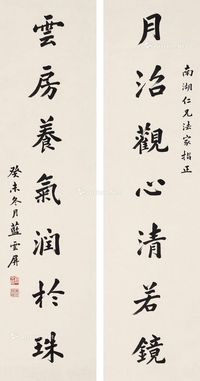 南湖仁兄法家指正
月治觀心清若鏡
雲房養氣润於珠
癸未冬月藍雲屏